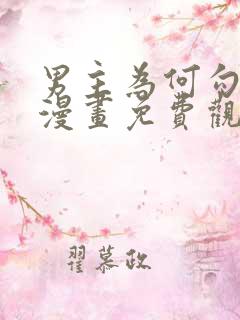 男主為何勾
漫畫免費觀
翟慕政